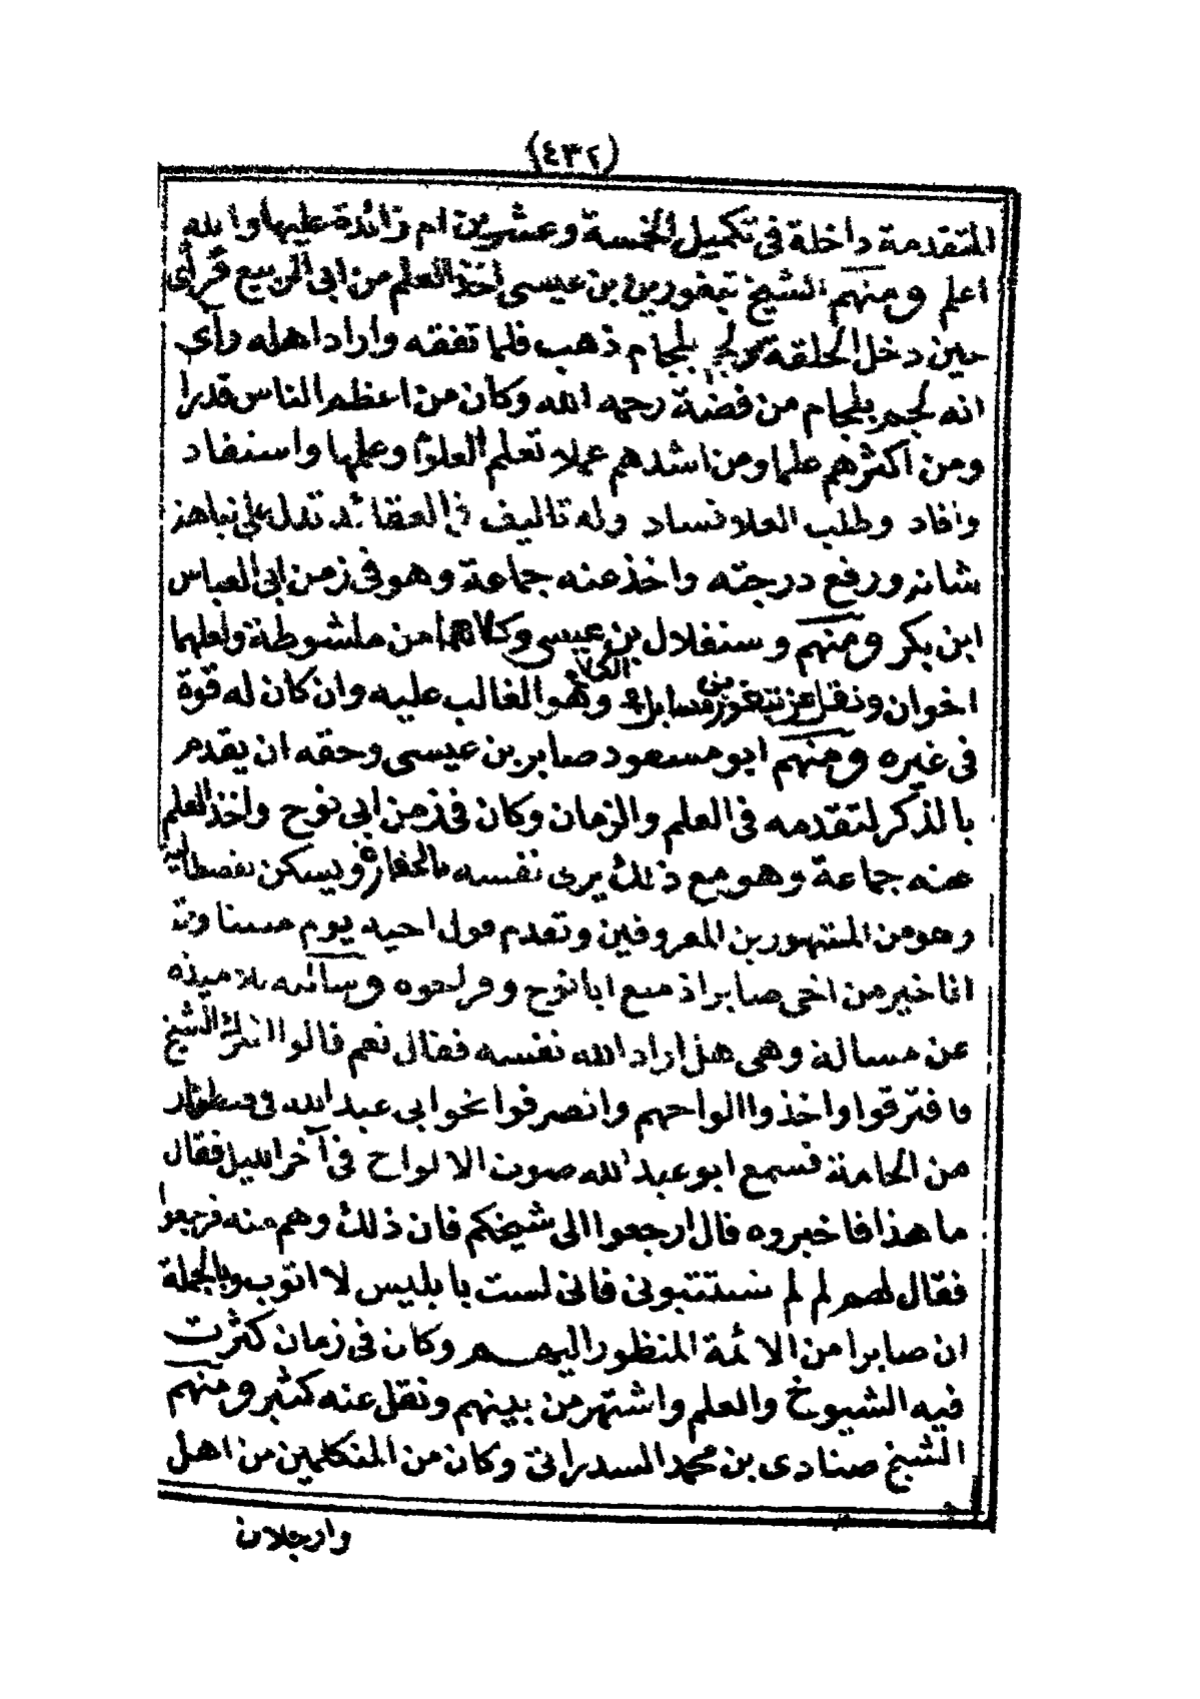 (٤٣٢)
المتقدمة داخلة في تكميل الخمسة وعشرين ام زائدة عليها والله
اعلم ومنهم الشيخ تبغورين بن عيسى اخذ العلم من ابى الربيع قرأى
حين دخل الحلقة بلجام ذهب فلما تفقه واراد اهله رأى
انه لجم بلجام من فضة رحمه الله وكان من اعظم الناس قدرا
ومن اكثرهم علما ومن اشدهم عملا تعلم العلوم وعلمها واستفاد
وافاد وطلب العلا فساد وله تاليف في العقائد تدل على نباهة
شانه ورفع درجته واخذ عنه جماعة وهو في زمن ابى العباس
ابن بكر ومنهم وسنفلال بن عيسى وكلاهما من ملشوطة ولعلهما
اخوان ونقل عن تبغورين مسايل الكلام وهو الغالب عليه وان كان له قوة
في غيره ومنهم ابو مسعود صابر بن عيسى وحقه ان يقدم
بالذكر لتقدمه في العلم والزمان وكان في زمن ابى نوح واخذ العلم
عنه جماعة وهو مع ذلك يرى نفسه بالحقارة ويسكن
وهو من المشهورين المعروفين وتقدم قول اخيه يوم
انا خير من اخى صابر اذ منع ابا نوح وسأله تلاميذه
عن مسالة وهى هل اراد الله نفسه فقال نعم قالوا اشرك الشيخ
فافترقوا واخذوا الواحهم وانصرفوا نحو ابى عبد الله في
من الحامة فسمع ابو عبد الله صوت الالواح في آخر الليل فقال
ما هذا فاخبروه قال ارجعوا الى شيخكم فان ذلك وهم منه فرجعوا
فقال لهم لم لم تستتبونى فانى لست بابليس لا اتوب وبالجملة
ان صابرا من الائمة المنظور اليهم وكان في زمان كثرت
فيه الشيوخ والعلم واشتهر من بينهم ونقل عنه كثير ومنهم
الشيخ صنادى بن محمد السدراتى وكان من المتكلمين من اهل
وارجلان